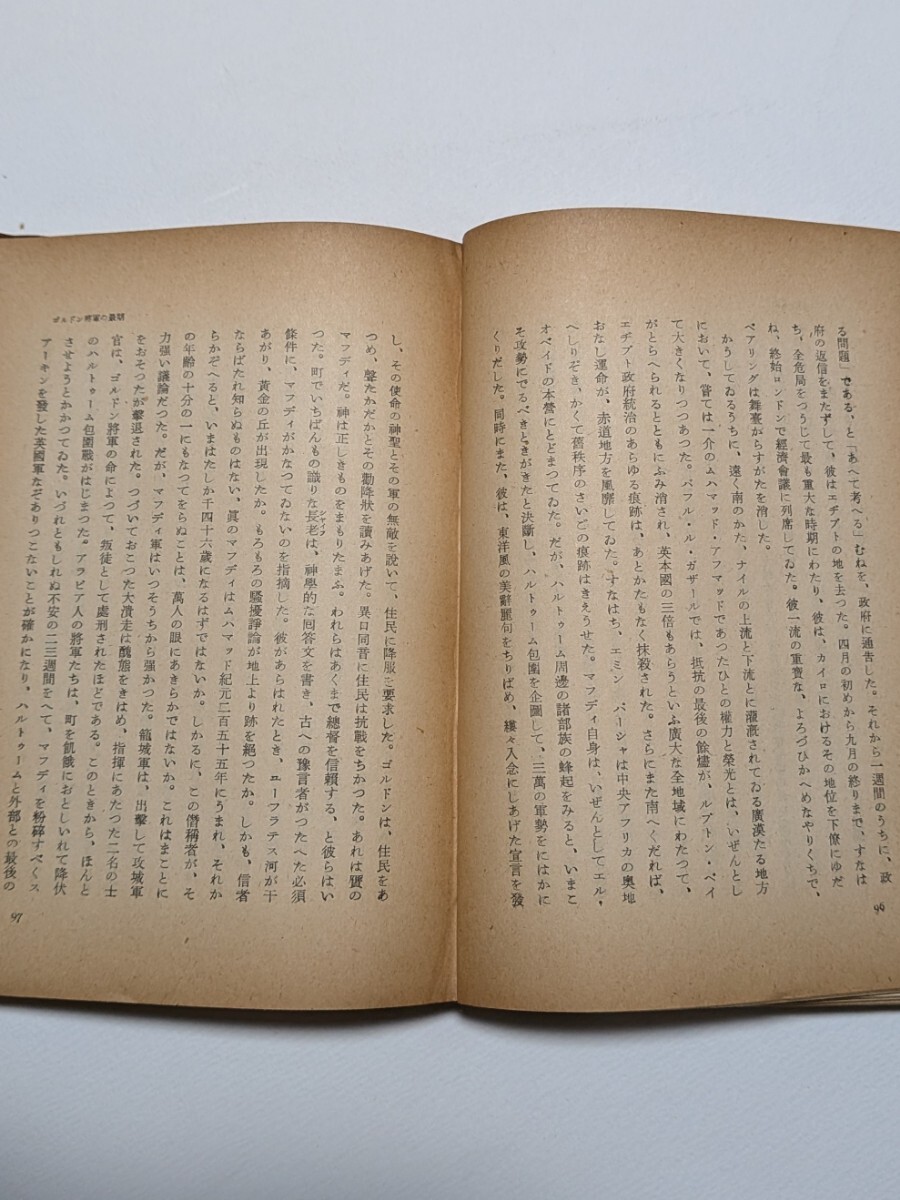 る問題」である、と「あへて考へる」むねを、政府に通告した。それから一週間のうちに、政
府の返信をまたずして、彼はエヂプトの地を去つた。四月の初めから九月の終りまで、すなは
ち、全危局をつうじて最も重大な時期にわたり、彼は、カイロにおけるその地位を下僚にゆだ
ね、終始ロンドンで經濟會議に列席してゐた。彼一流の重寶な、よろづひかへめなやりくちで、
ベアリングは舞臺からすがたを消した。
かうしてゐるうちに、遠く南のかた、ナイルの上流と下流とに灌漑されてゐる廣漠たる地方
において、嘗ては一介のムハマッド・アフマッドであつたひとの權力と榮光とは、いぜんとし
て大きくなりつつあつた。バフル・ル・ガザールでは、抵抗の最後の餘燼が、ルプトン・ベイ
がとらへられるとともにふみ消され、英本國の三倍もあらうといふ廣大な全地域にわたつて、
エヂプト政府統治のあらゆる痕跡は、あとかたもなく抹殺された。さらにまた南へくだれば、
おなじ運命が、赤道地方を風靡してゐた。すなはち、エミン パーシャは中央アフリカの奥地
へしりぞき、かくて舊秩序のさいごの痕跡はきえうせた。マフディ自身は、いぜんとしてエル・
オベイドの本營にとどまつてゐた。だが、ハルトゥーム周邊の諸部族の蜂起をみると、いまこ
そ攻勢にでるべきときがきたと決斷し、ハルトゥーム包圍を企圖して、三萬の軍勢をにはかに
くりだした。同時にまた、彼は、東洋風の美辭麗句をちりばめ、縷々入念にしあげた宣言を發
96
ゴルドン將軍の最期
し、その使命の神聖とその軍の無敵を說いて、住民に降服を要求した。ゴルドンは、住民をあ
つめ、聲たかだかとその勸降狀を讀みあげた。異口同音に住民は抗戰をちかつた。あれは贋の
マフディだ。神は正しきものをまもりたまふ。われらはあくまで總督を信賴する、と彼らはい
つた。町でいちばんもの識りな長老は、神學的な囘答文を書き、古への豫言者がつたへた必須
シャイフ
條件に、マフディがかなつてゐないのを指摘した。彼があらはれたとき、ユーフラテス河が干
あがり、黃金の丘が出現したか。もろもろの騷擾諍論が地上より跡を絕つたか。しかも、信者
ならばたれ知らぬものはない、眞のマフディはムハマッド紀元二百五十五年にうまれ、それか
らかぞへると、いまはたしか千四十六歲になるはずではないか。しかるに、この僭稱者が、そ
の年齡の十分の一にもなつてをらぬことは、萬人の眼にあきらかではないか。これはまことに
力强い議論だつた。だが、マフディ軍はいつそうちから强かつた。籠城軍は、出擊して攻城軍
をおそつたが擊退された。つづいておこつた大潰走は醜態をきはめ、指揮にあたつた二名の士
官は、ゴルドン將軍の命によつて、叛徒として處刑されたほどである。このときから、ほんと
のハルトゥーム包圍戰がはじまつた。アラビア人の將軍たちは、町を飢餓におとしいれて降伏
させようとかかつてゐた。いづれともしれぬ不安の二三週間をへて、マフディを粉碎すべくス
アーキンを發した英國軍なぞありつこないことが確かになり、ハルトゥームと外部との最後の
97